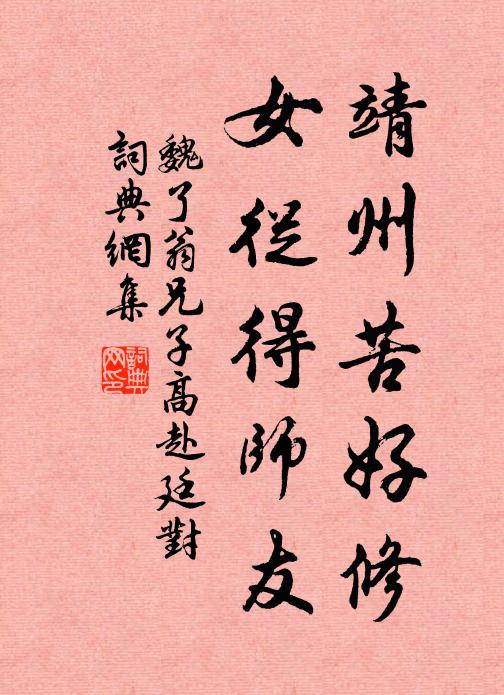 靖州苦好修
女從得師友
魏了翁兄子高赴廷對
詞典網集
詞典網印